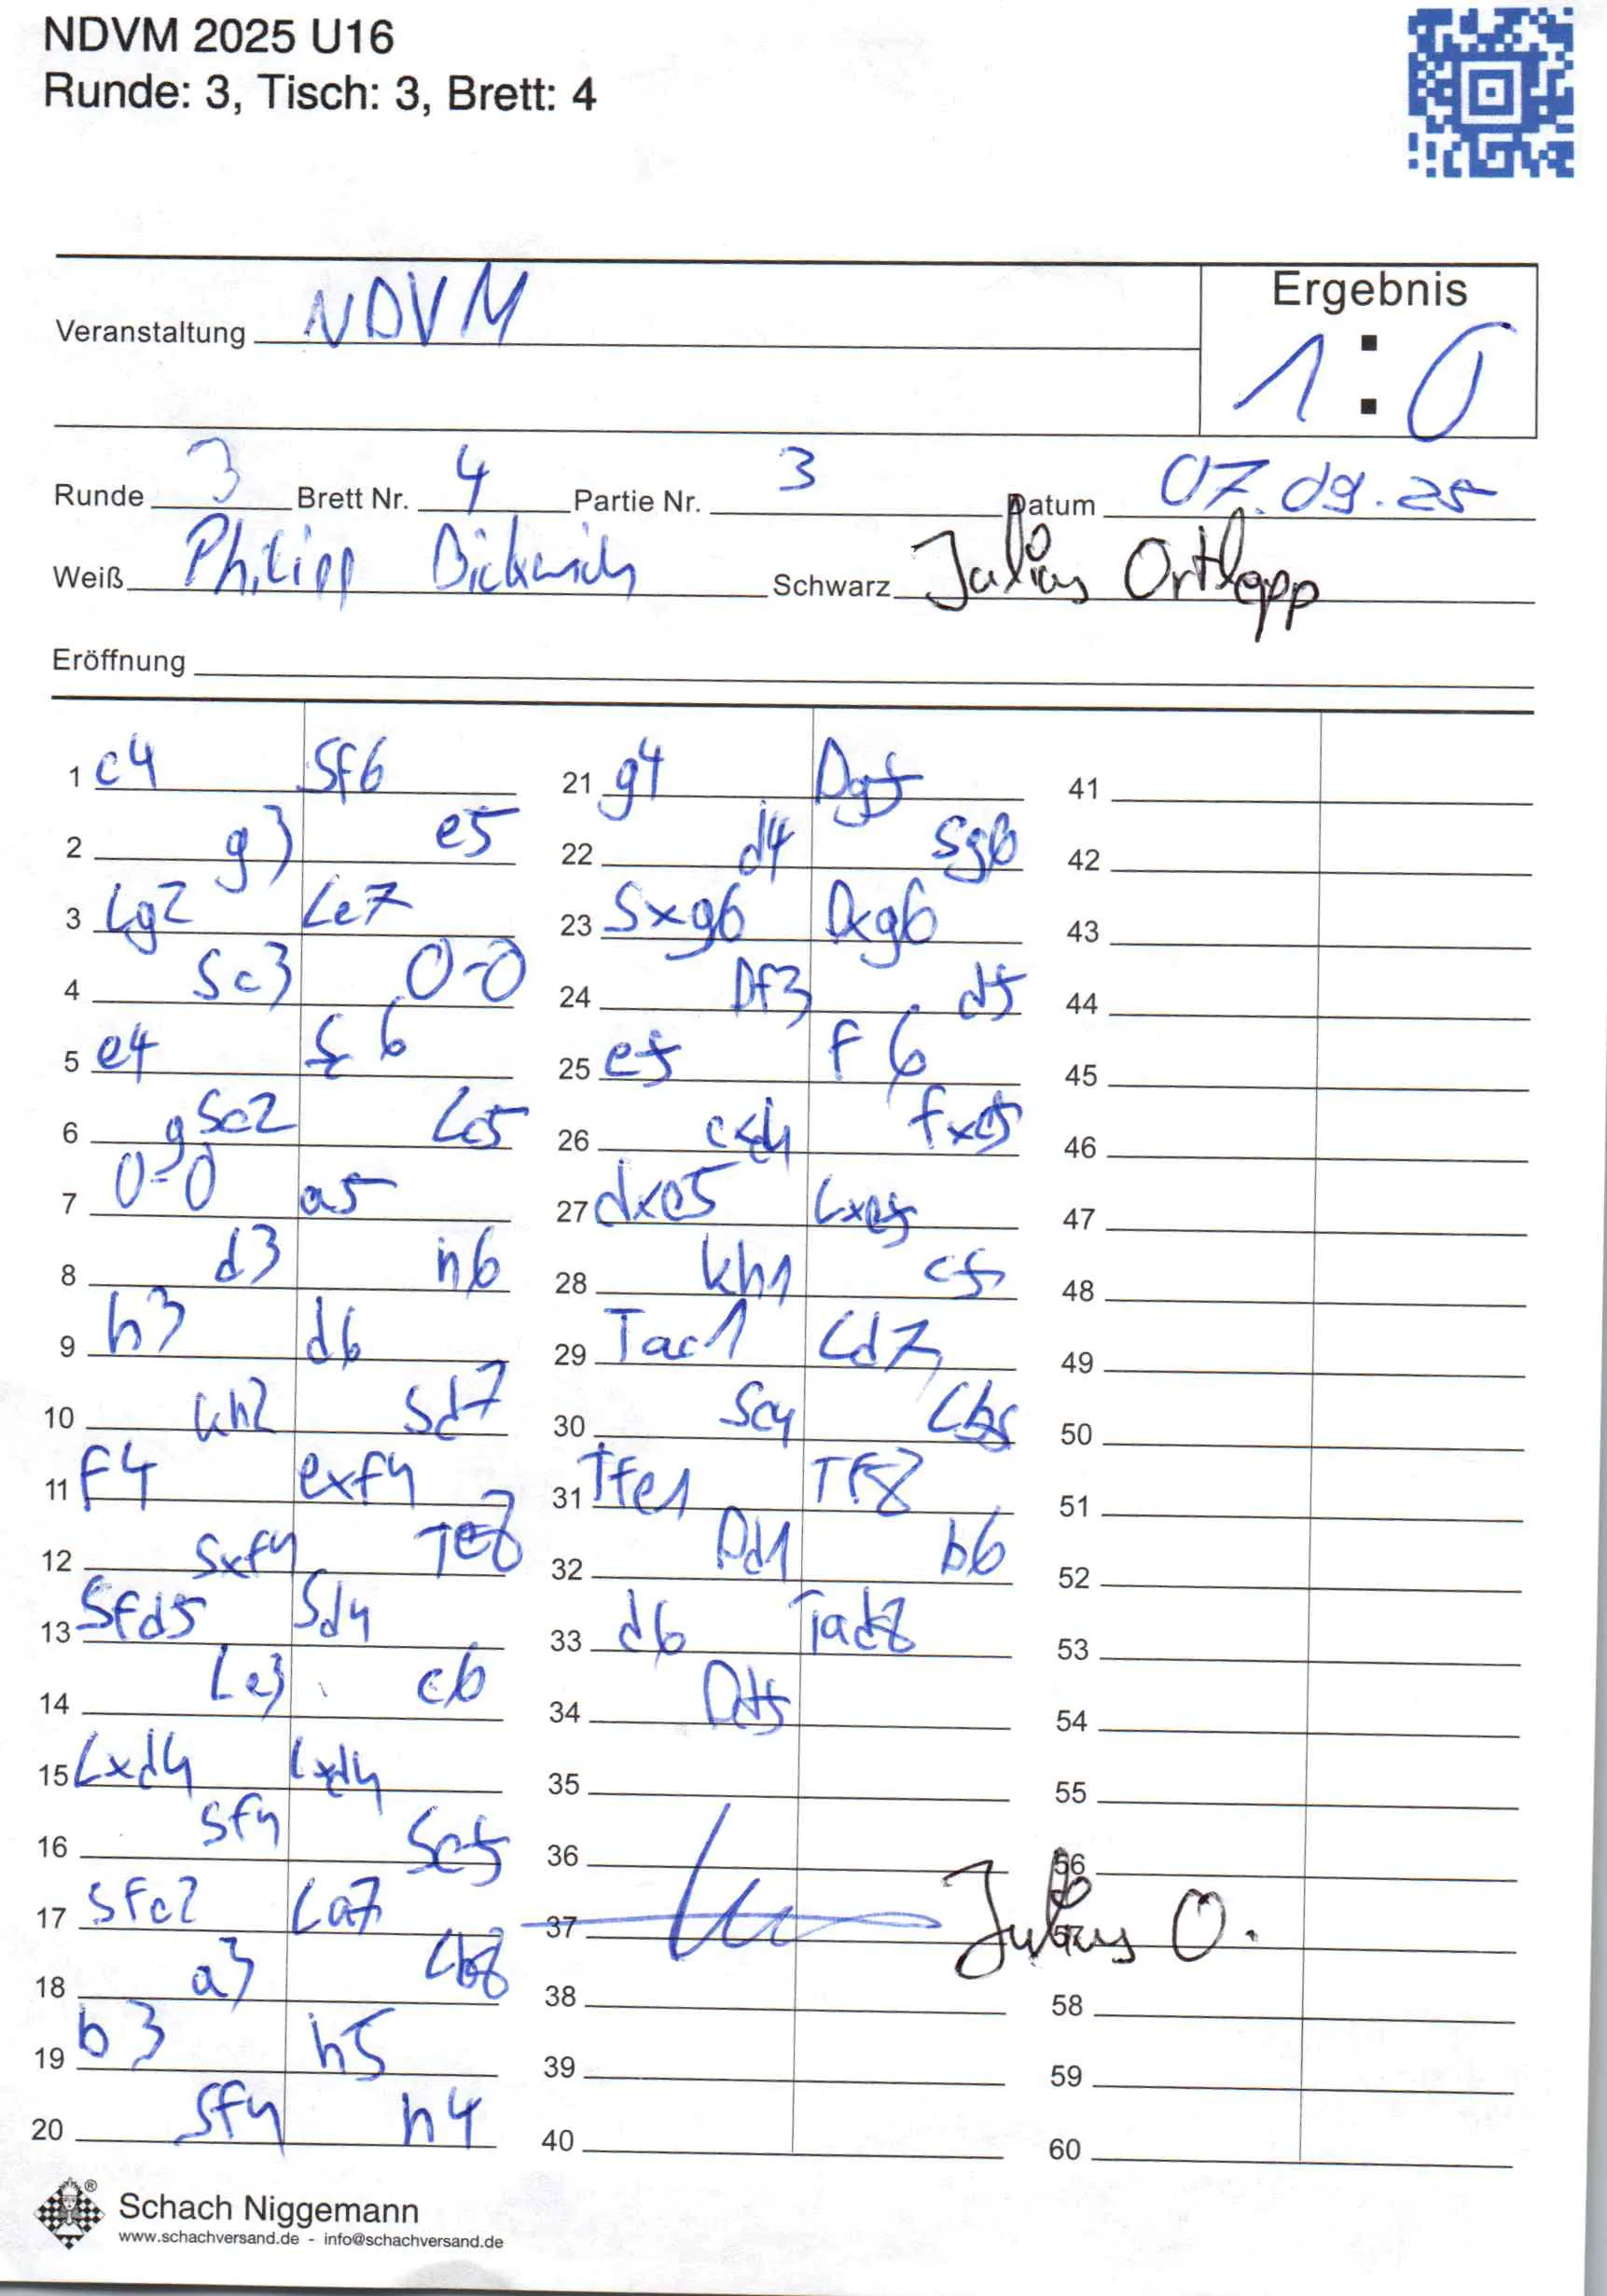 NDVM 2025 U16
Runde: 3, Tisch: 3, Brett: 4
Ergebnis
Veranstaltung NDVM
1 : 0
Runde 3 Brett Nr. 4 Partie Nr. 3 Datum 07.09.25
Weiß Philipp Schwarz Julius Ortlepp
Eröffnung
1 c4 Sf6 21 g4 Dg5 41
2 g3 e5 22 d4 Sg6 42
3 Lg2 Le7 23 Sxg6 Dxg6 43
4 Sc3 0-0 24 Df3 d5 44
5 e4 Sc6 25 e5 f6 45
6 gSe2 Lc5 26 cxd4 fxe5 46
7 0-0 a5 27 dxe5 Lxe5 47
8 d3 h6 28 Kh1 c5 48
9 h3 d6 29 Tac1 Ld7 49
10 Kh2 Sd7 30 Sa4 Lb5 50
11 f4 exf4 31 Tfe1 Tf8 51
12 Sxf4 Te8 32 Dd1 b6 52
13 Sfd5 Sd4 33 d6 Tad8 53
14 Le3 c6 34 Dd5 54
15 Lxd4 Lxd4 35 55
16 Sf4 Sc5 36 56
17 Sfe2 La7 37 Julius O.
18 a3 Lb8 38 58
19 b3 h5 39 59
20 Sf4 h4 40 60
® Schach Niggemann
www.schachversand.de - info@schachversand.de